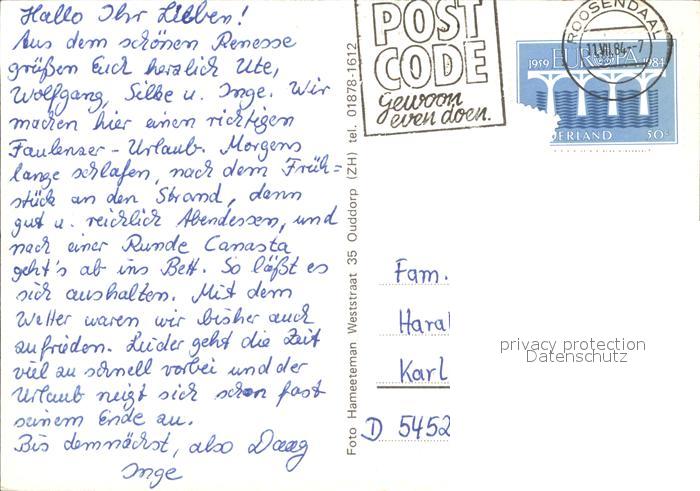 Hallo Ihr Lieben!
Aus dem schönen Renesse
grüßen Euch herzlich Ute,
Wolfgang, Silke u. Inge. Wir
machen hier einen richtigen
Faulenzer-Urlaub. Morgens
lange schlafen, nach dem Früh=
stück an den Strand, dann
gut u. reichlich Abendessen, und
nach einer Runde Canasta
geht's ab ins Bett. So läßt es
sich aushalten. Mit dem
Wetter waren wir bisher auch
zufrieden. Leider geht die Zeit
viel zu schnell vorbei und der
Urlaub neigt sich schon fast
seinem Ende zu.
Bis demnächst, also Daag
Inge
Foto Hameeteman Weststraat 35 Ouddorp (ZH) tel. 01878-1612
POST
CODE
Gewoon
even doen.
ROOSENDAAL
11.VII.84-7
1959 EUROPA 1984
NEDERLAND 50c
Fam.
Haral
Karl
D 5452
privacy protection
Datenschutz